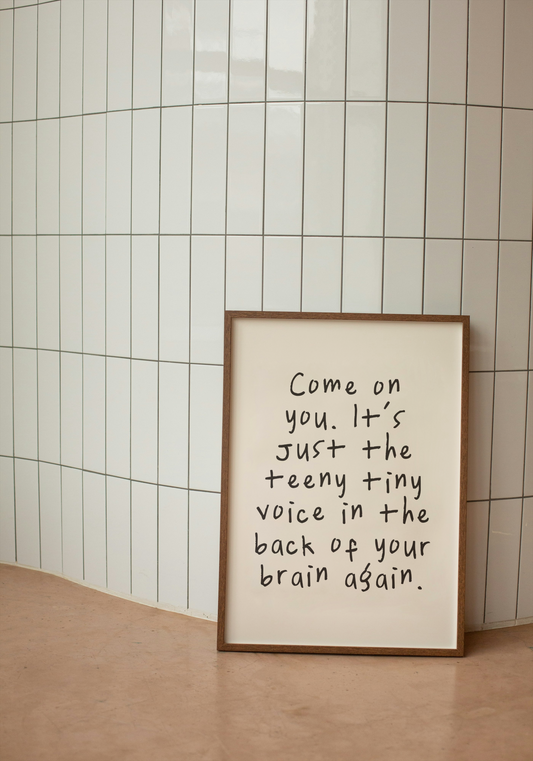 Come on
you. It's
just the
teeny tiny
voice in the
back of your
brain again.